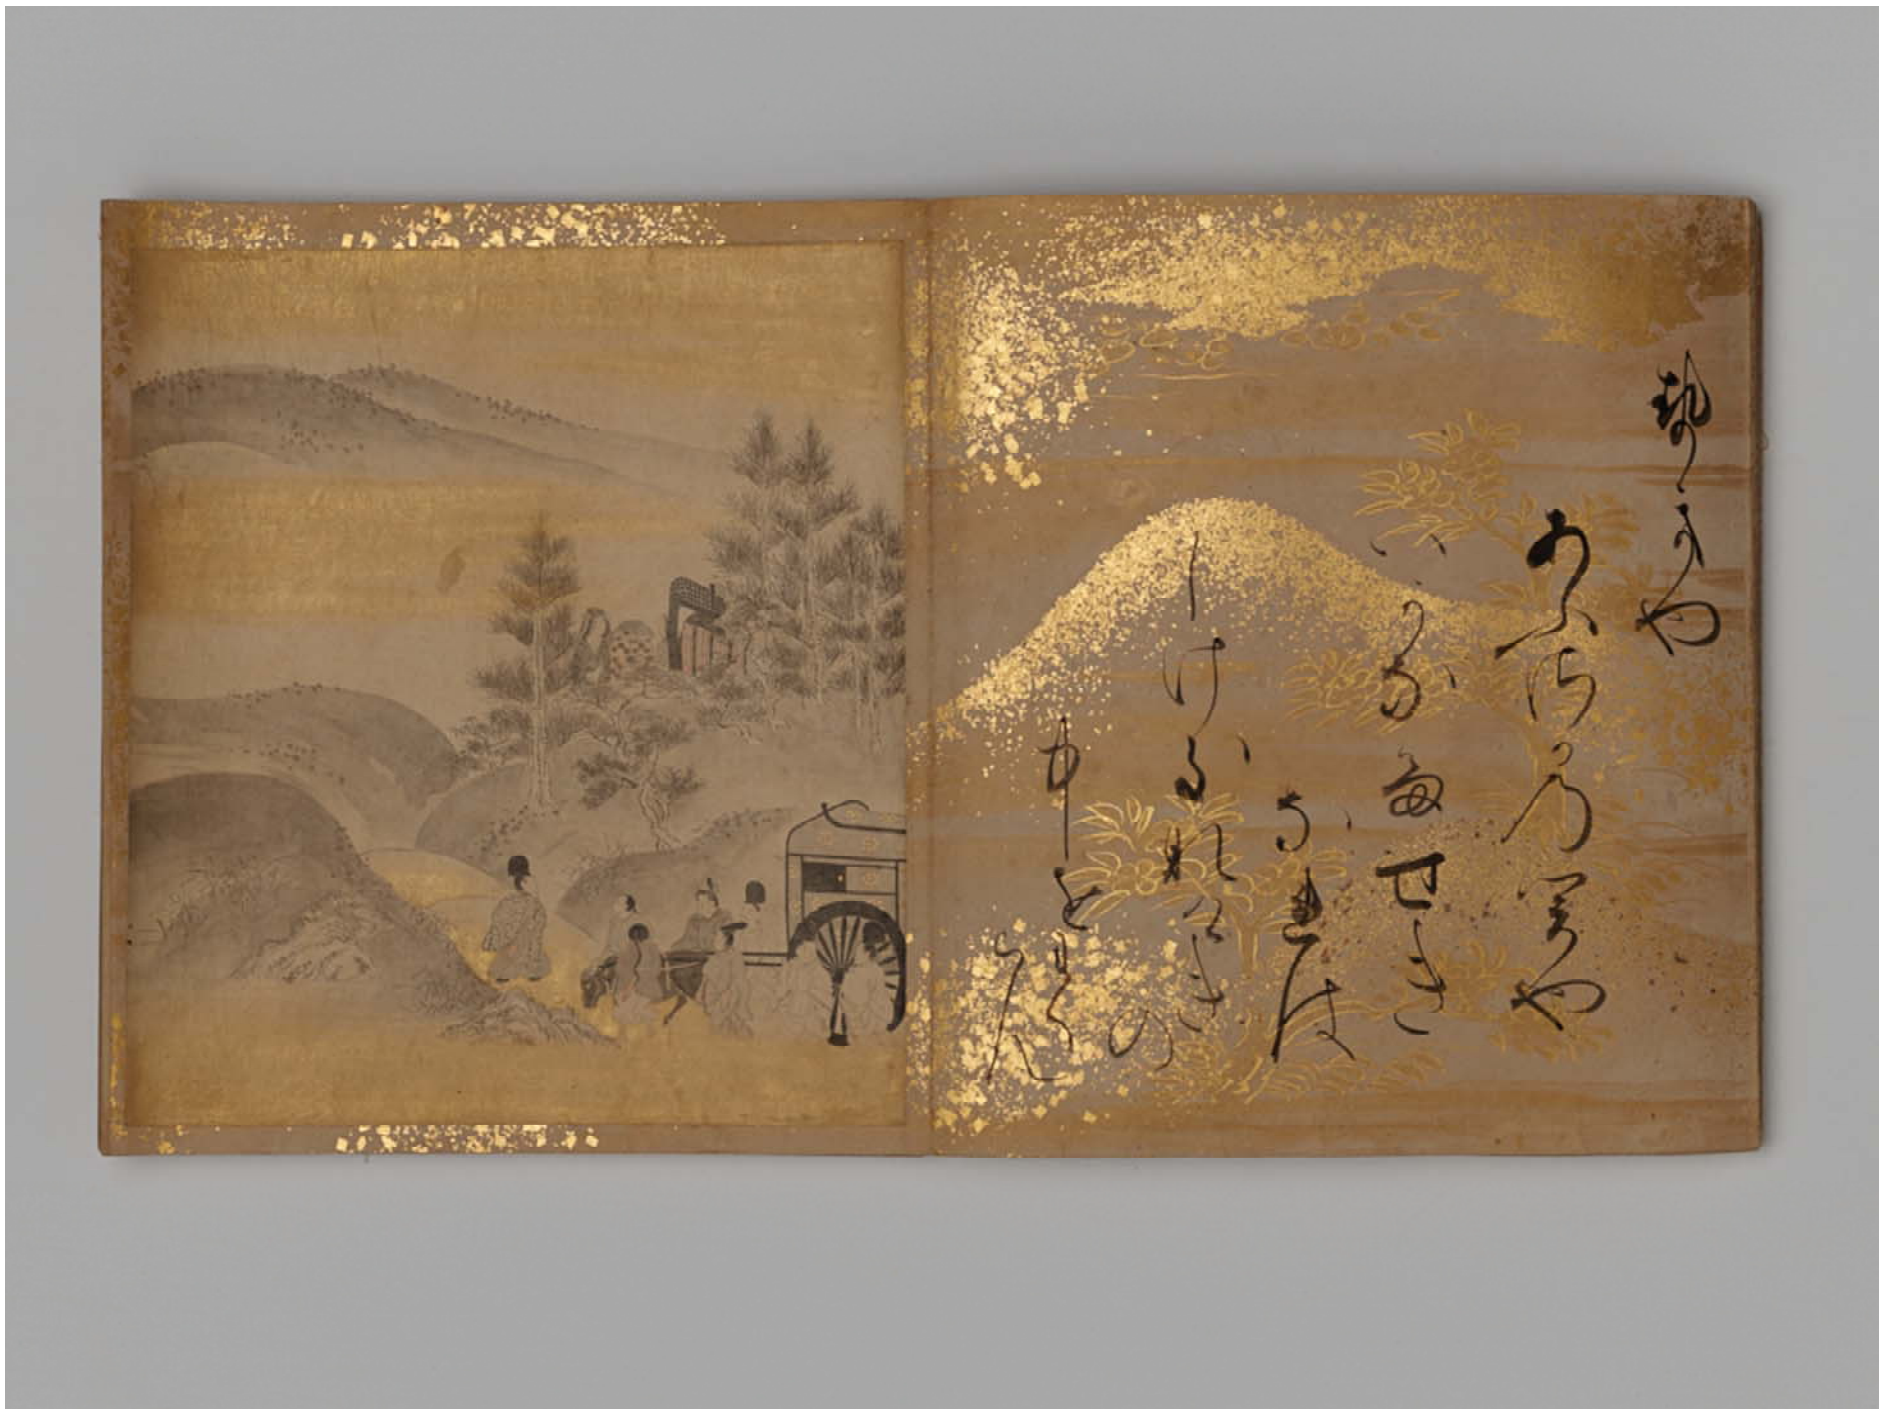 せきや
あふさかの関や
いかなるせき
なれは
しけきなけきの
中をわく
らん